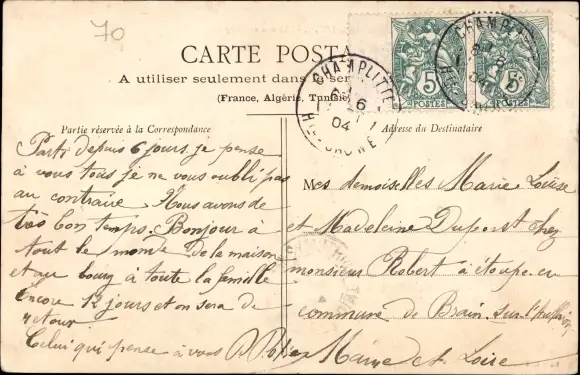 70
CARTE POSTA
A utiliser seulement dans le ser
(France, Algérie, Tunisie)
5c
POSTES
5c
POSTES
CHAMPLITTE
6
04
HTE-SAONE
CHAMPL
04
Partie réservée à la Correspondance
Parti depuis 6 jours je pense
à vous tous je ne vous oubli pas
au contraire Nous avons de
très bon temps. Bonjour à
tout le monde De la maison
et au bourg à toute la famille
Encore 12 jours et on sera de
retour
Celui qui pense à vous
Adresse du Destinataire
Mes demoiselles Marie Louise
et Madeleine Dupont chez
monsieur Robert à étoupe en
commune de Brain sur l'
Maine et Loire